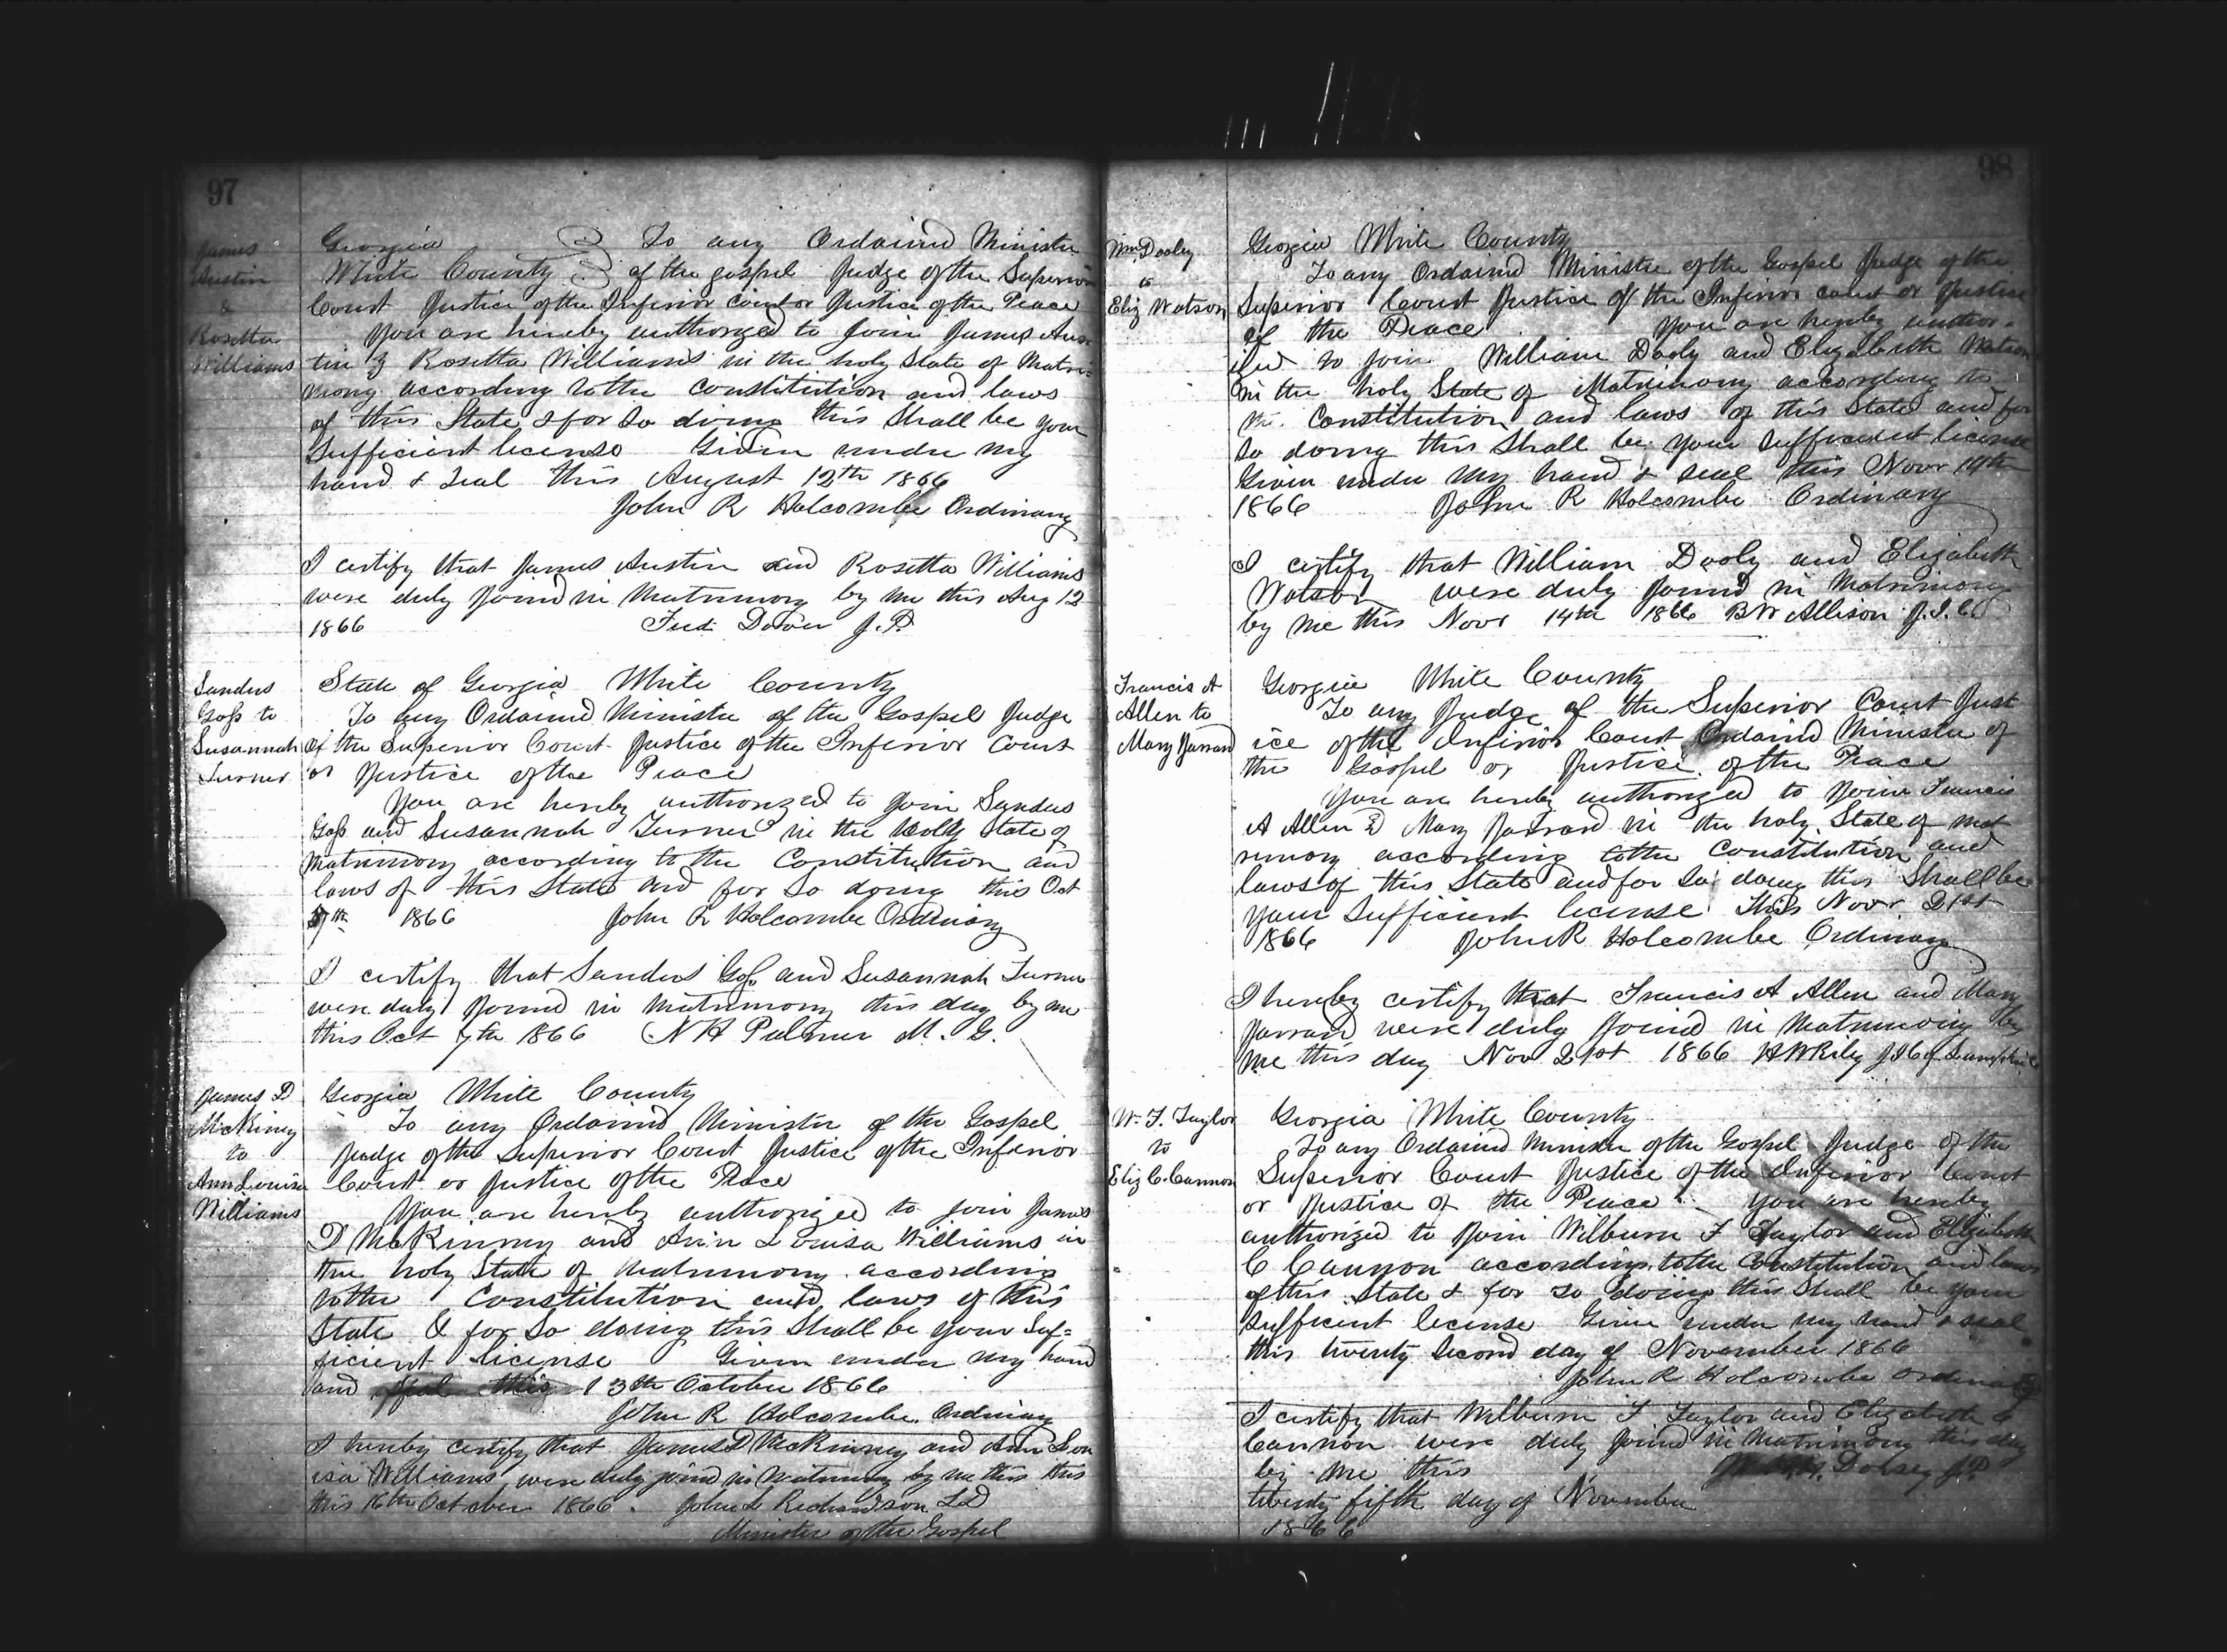 97
James
Austin
&
Rosetta
Williams
Georgia To any Ordained Minister
White County of the gospel Judge of the Superior
Court Justice of the Inferior Court or Justice of the Peace
You are hereby authorized to join James Aus=
tin & Rosetta Williams in the holy State of Matri=
mony according to the constitution and laws
of this State & for So doing this Shall be your
Sufficient license Given under my
hand & Seal this August 12th 1866
John R Holcombe Ordinary
I certify that James Austin and Rosetta Williams
were duly joind in Matrimony by me this Aug 12
1866 J.P.
Sanders
Goss to
Susannah
Turner
State of Georgia White County
To any Ordained Minister of the Gospel Judge
of the Superior Court Justice of the Inferior Court
or Justice of the Peace
You are hereby authorized to join Sanders
Goss and Susannah Turner in the Holy State of
Matrimony according to the Constitution and
laws of this State and for So doing this Oct
7th 1866 John R Holcombe Ordinary
I certify that Sanders Goss and Susannah Turner
were duly joined in matrimony this day by me
this Oct 7th 1866 N H Palmer M. G.
James D
McKiney
to
Ann Louisa
Williams
Georgia White County
To any Ordained Minister of the Gospel
Judge of the Superior Court Justice of the Inferior
Court or Justice of the Peace
You are hereby authorized to join James
D McKinney and Ann Louisa Williams in
the holy State of Matrimony according
to the Constitution and laws of this
State & for So doing this Shall be your Suf=
ficient license Given under my hand
and Seal this 13th October 1866
John R Holcombe Ordinary
I hereby certify that James D McKinney and Ann Lou
isa Williams were duly joind in Matrimony by me this this
this 16th October 1866. John L Richardson
Minister of the Gospel
98
Wm Dooley
to
Eliz Watson
Georgia White County
To any Ordained Minister of the Gospel Judge of the
Superior Court Justice of the Inferior court or Justice
of the Peace You are hereby author=
ized to join William Dooly and Elizabeth Watson
in the holy State of Matrimony according to
the Constitution and laws of this State and for
So doing this Shall be your Sufficient license
Given under my hand & seal this Novr 14th
1866 John R Holcombe Ordinary
I certify that William Dooly and Elizabeth
Watson were duly joined in Matrimony
by me this Novr 14th 1866 B W Allison J.I.C.
Francis A
Allen to
Mary Jarrard
Georgia White County
To any Judge of the Superior Court Just
ice of the Inferior Court Ordained Minister of
the Gospel or Justice of the Peace
You are hereby authorized to join Francis
A Allen & Mary Jarrard in the holy State of mat
rimony according to the Constitution and
laws of this State and for So doing this Shall be
your Sufficient license This Novr 21st
1866 John R Holcombe Ordinary
I hereby certify that Francis A Allen and Mary
Jarrard were duly joined in Matrimony by
me this day Nov 21st 1866 H W Riley J I C of Lumpkin
W. F. Taylor
to
Eliz C. Cannon
Georgia White County
To any Ordained Minister of the Gospel Judge of the
Superior Court Justice of the Inferior Court
or Justice of the Peace You are hereby
authorized to join Wilburn F Taylor and Elizabeth
C Cannon according to the Constitution and laws
of this State & for so doing this Shall be your
Sufficient license Given under my hand & seal
this twenty Second day of November 1866
John R Holcombe Ordinary
I certify that Wilburn F Taylor and Elizabeth C
Cannon were duly joind in Matrimony this day
by me this Dorsey J.P.
twenty fifth day of November
1866